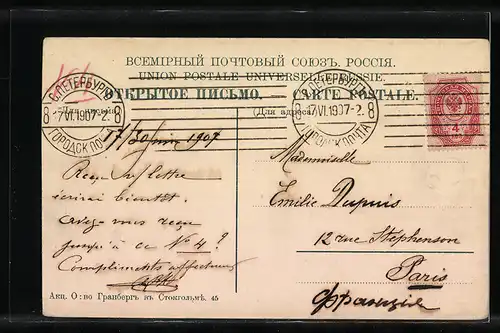 ВСЕМІРНЫЙ ПОЧТОВЫЙ СОЮЗЪ. РОССІЯ.
UNION POSTALE UNIVERSELLE. RUSSIE.
ОТКРЫТОЕ ПИСЬМО. CARTE POSTALE.
С.ПЕТЕРБУРГЪ
8 17VI.1907-2. 8
ГОРОДСК.ПОЧТА
С.ПЕТЕРБУРГЪ
8 17VI.1907-2. 8
ГОРОДСК.ПОЧТА
4
(Для адреса)
17/30 juin 1907
Reçu lettre
écrirai bientôt.
avez-vous reçu
jusqu'à ce No 4 ?
Compliments affectueux
Mademoiselle
Emilie Dupuis
12 rue Stephenson
Paris
Франція
Акц. О: во Гранбергъ въ Стокгольмѣ. 45